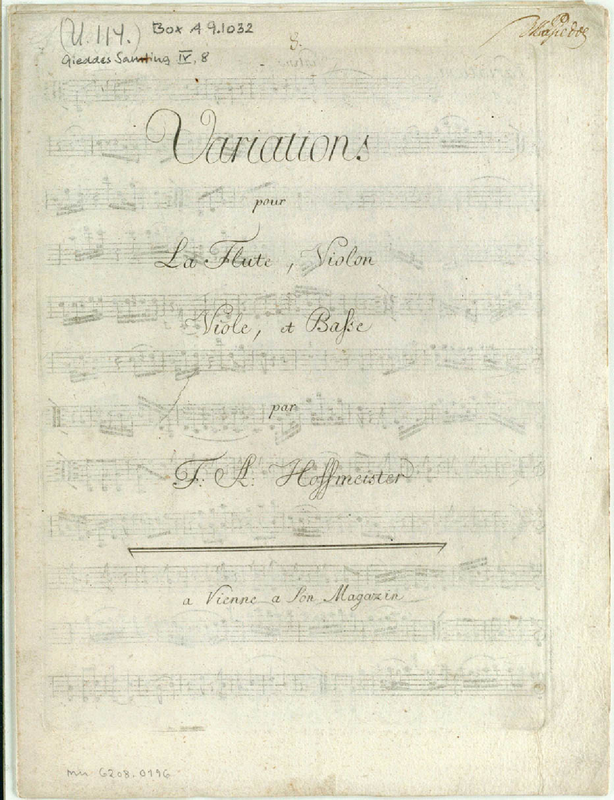 (U. 114.) Box A 9.1032
Gieddes Samling IV, 8
Variations
pour
La Flute, Violon
Viole, et Baſse
par
F: A: Hoffmeister
a Vienne a Son Magazin
mu 6208.0196